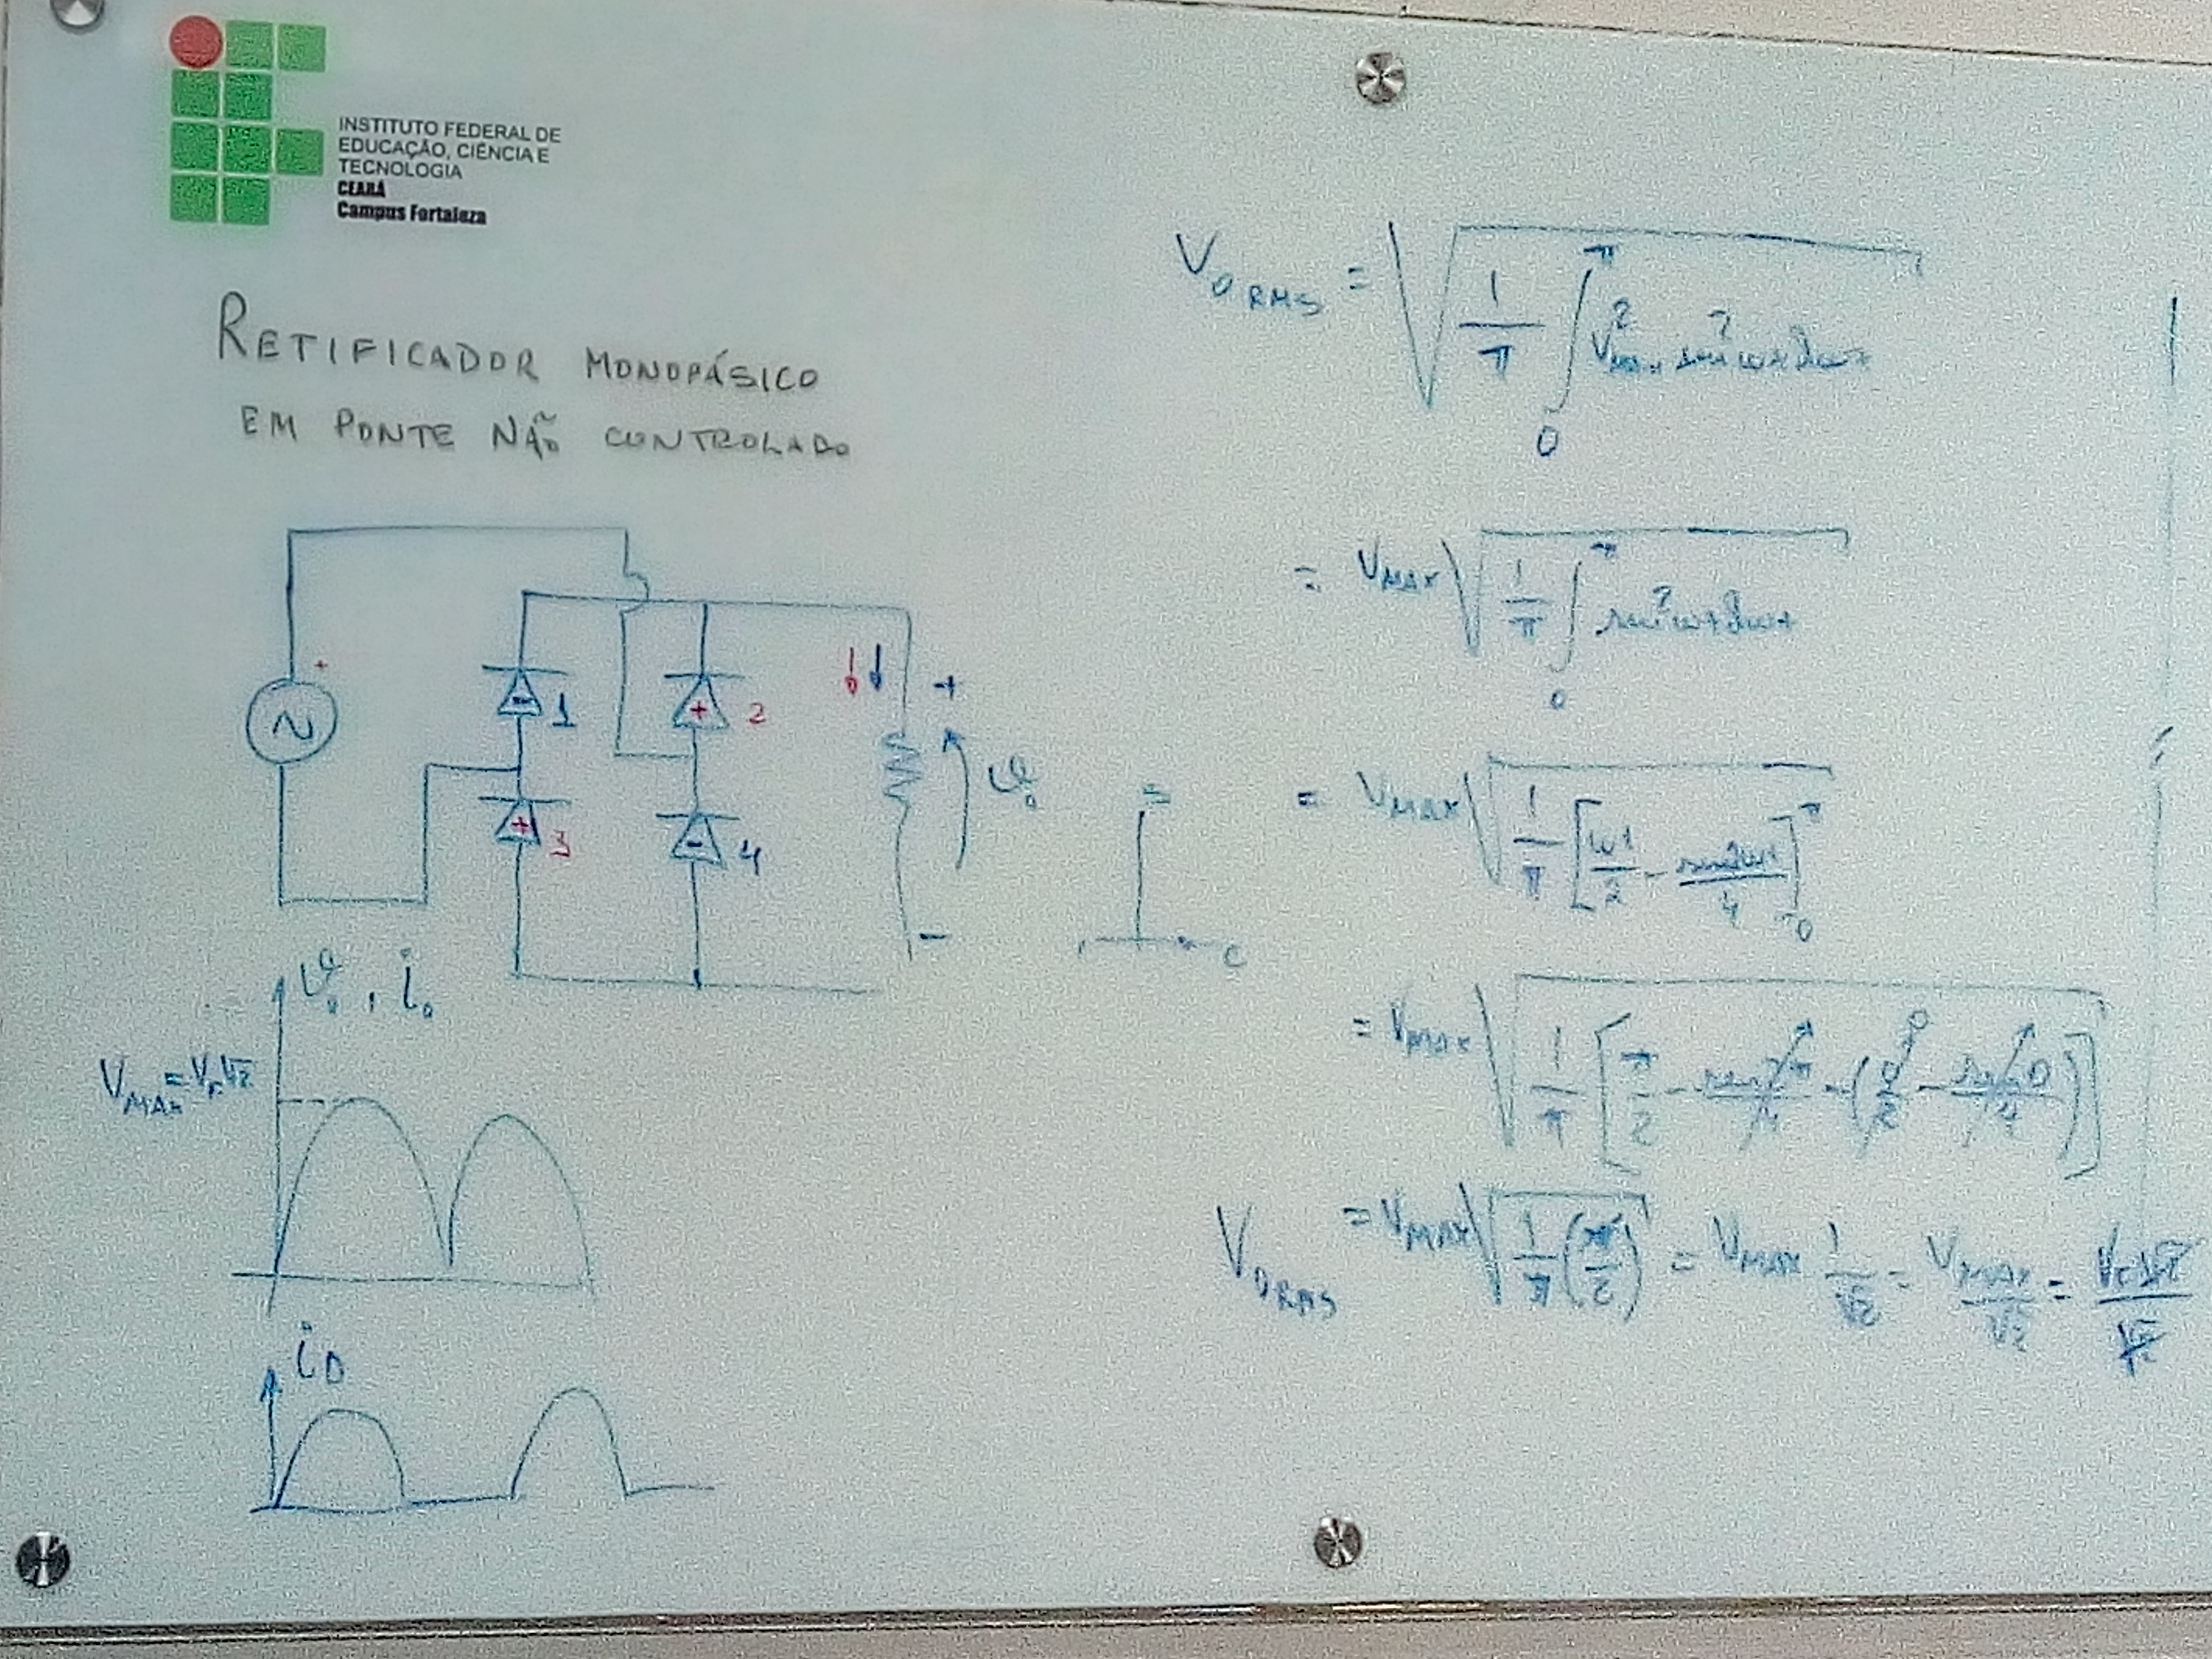 INSTITUTO FEDERAL DE
EDUCAÇÃO, CIÊNCIA E
TECNOLOGIA
CEARÁ
Campus Fortaleza
RETIFICADOR MONOFÁSICO
EM PONTE NÃO CONTROLADO
+
- 1
+ 2
+ 3
- 4
+
v₀
-
=
c
v₀, i₀
V_MAX = V_F √2
i_D
V_0RMS = √( 1/π ∫₀^π V²_MAX sen² ωt dωt )
= V_MAX √( 1/π ∫₀^π sen² ωt dωt )
= V_MAX √( 1/π [ ωt/2 - sen2ωt/4 ]₀^π )
= V_MAX √( 1/π [ π/2 - sen2π/4 - ( 0/2 - sen 0/4 ) ] )
V_0RMS = V_MAX √( 1/π (π/2) ) = V_MAX 1/√2 = V_MAX/√2 = V_F√2/√2